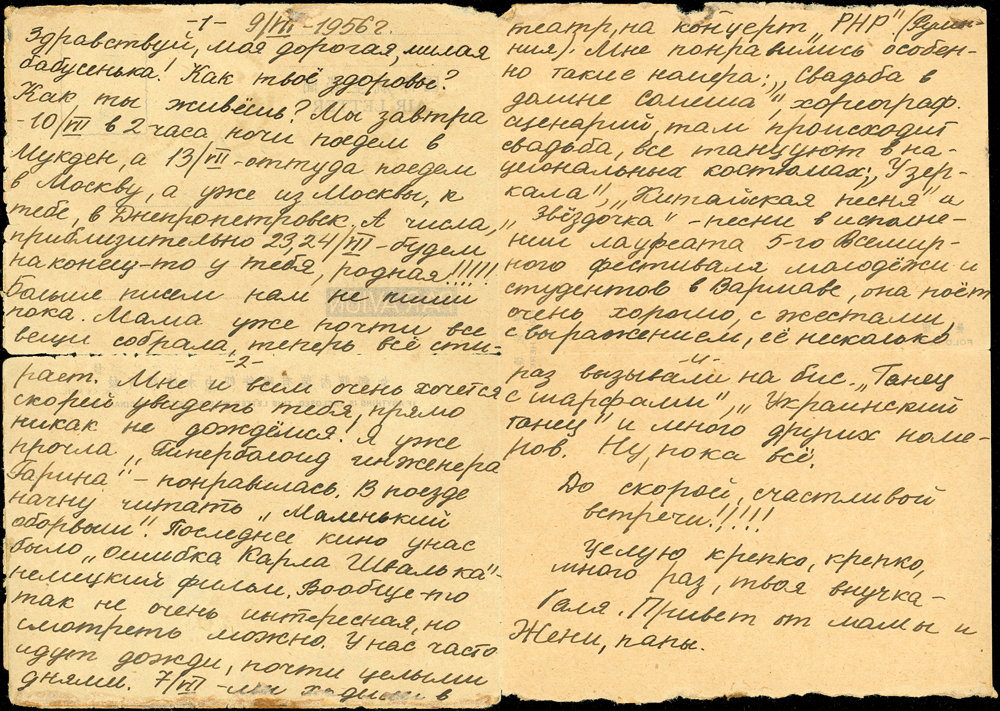 -1- 9/VII-1956г.
Здравствуй, моя дорогая, милая
бабусенька! Как твоё здоровье?
Как ты живёшь? Мы завтра
-10/VII в 2 часа ночи поедем в
Мукден, а 13/VII-оттуда поедем
в Москву, а уже из Москвы, к
тебе, в Днепропетровск. А числа,
приблизительно 23,24/VII-будем
наконец-то у тебя, родная!!!!!
Больше писем нам не пиши
пока. Мама уже почти все
вещи собрала, теперь всё сти-
-2-
рает. Мне и всем очень хочется
скорей увидеть тебя, прямо
никак не дождёмся! Я уже
прочла „Гиперболоид инженера
Гарина" - понравилась. В поезде
начну читать „Маленький
оборвыш". Последнее кино у нас
было „Ошибка Карла Швалька"-
немецкий фильм. Вообще-то
так не очень интересная, но
смотреть можно. У нас часто
идут дожди, почти целыми
днями. 7/VII -мы ходили в
театр, на концерт „РНР" (Румы-
ния). Мне понравились особен-
но такие номера: „Свадьба в
долине Сомеша", хореограф.
сценарий, там происходит
свадьба, все танцуют в на-
циональных костюмах; „У зер-
кала", „Китайская песня" и
„Звёздочка" - песни в исполне-
нии лауреата 5-го Всемир-
ного фестиваля молодёжи и
студентов в Варшаве, она поёт
очень хорошо, с жестами,
с выражением, её несколько
-4-
раз вызывали на бис. „Танец
с шарфами", „Украинский
танец" и много других номе-
ров. Ну, пока всё.
До скорой, счастливой
встречи!!!!!
Целую крепко, крепко,
много раз, твоя внучка-
Галя. Привет от мамы и
Жени, папы.
AIR LETTER
PAR AVION